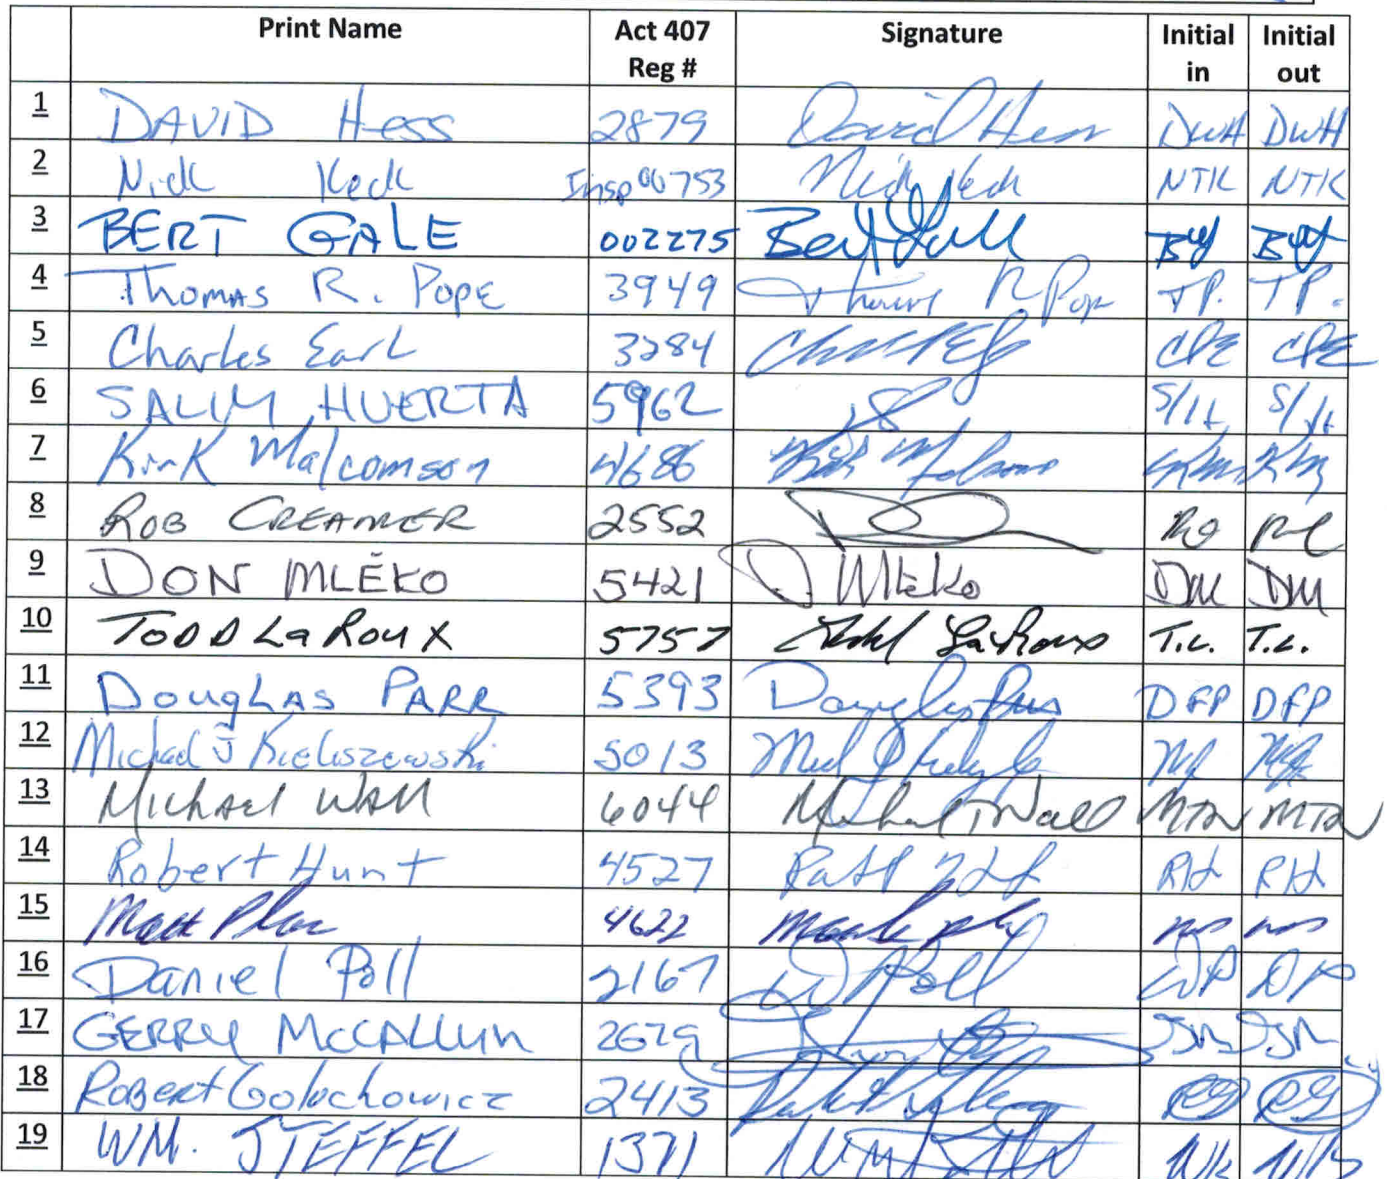 Print Name Act 407 Reg # Signature Initial in Initial out
1 DAVID Hess 2879 David Hess DWH DWH
2 Nick Keck Insp 00753 Nick Keck NTK NTK
3 BERT GALE 002275 Bert Gale
4 Thomas R. Pope 3949 Thomas R Pope TP. TP.
5 Charles Earl 3284 CPE CPE
6 SALLY HUERTA 5962 S/H S/H
7 Kirk Malcomson 4686 Kirk Malcomson KM KM
8 ROB CREAMER 2552 RC RC
9 DON MLÉKO 5421 D Mleko DM DM
10 TODD LaRouX 5757 Todd LaRoux T.L. T.L.
11 DougLAS PARR 5393 Douglas Parr DFP DFP
12 Michael J Kieliszewski 5013
13 Michael Wall 6044 Michael Wall
14 Robert Hunt 4527 RH RH
15 Matt 4622
16 Daniel Poll 2167 D Poll DP DP
17 GERRY McCALLUM 2629
18 Robert Golochowicz 2413 RG RG
19 WM. STEFFEL 1371